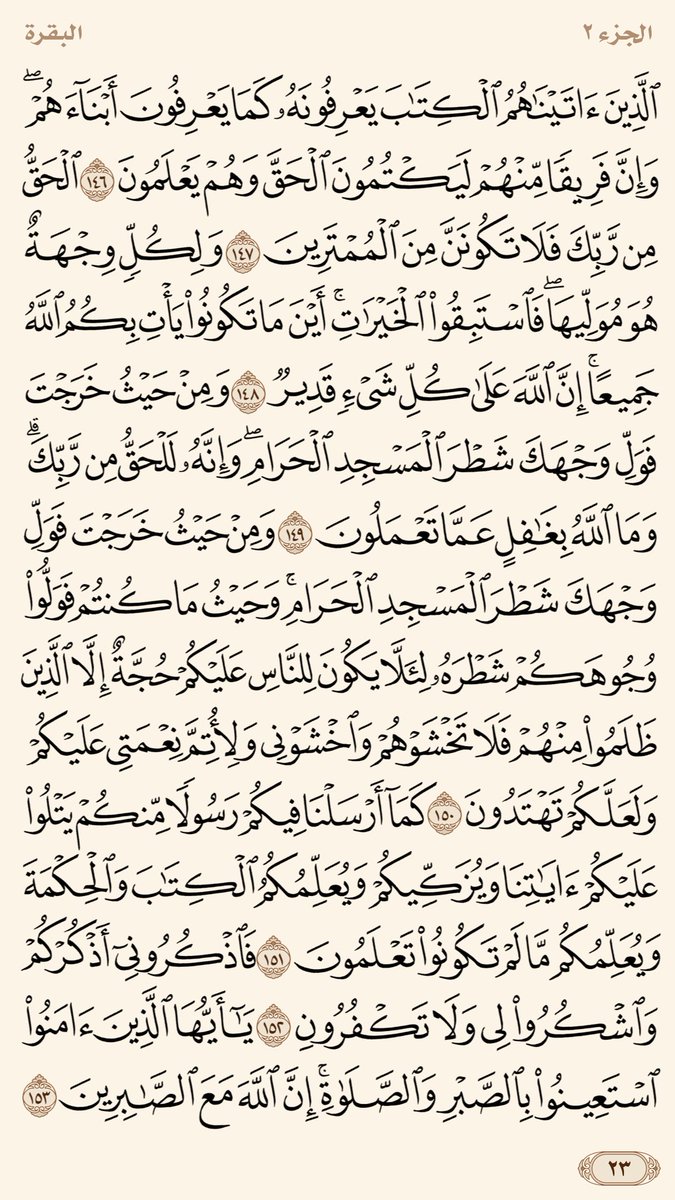 الجزء ٢
البقرة
ٱلَّذِينَ ءَاتَيۡنَٰهُمُ ٱلۡكِتَٰبَ يَعۡرِفُونَهُۥ كَمَا يَعۡرِفُونَ أَبۡنَآءَهُمۡۖ
وَإِنَّ فَرِيقٗا مِّنۡهُمۡ لَيَكۡتُمُونَ ٱلۡحَقَّ وَهُمۡ يَعۡلَمُونَ ١٤٦ ٱلۡحَقُّ
مِن رَّبِّكَ فَلَا تَكُونَنَّ مِنَ ٱلۡمُمۡتَرِينَ ١٤٧ وَلِكُلّٖ وِجۡهَةٌ
هُوَ مُوَلِّيهَاۖ فَٱسۡتَبِقُواْ ٱلۡخَيۡرَٰتِۚ أَيۡنَ مَا تَكُونُواْ يَأۡتِ بِكُمُ ٱللَّهُ
جَمِيعًاۚ إِنَّ ٱللَّهَ عَلَىٰ كُلِّ شَيۡءٖ قَدِيرٞ ١٤٨ وَمِنۡ حَيۡثُ خَرَجۡتَ
فَوَلِّ وَجۡهَكَ شَطۡرَ ٱلۡمَسۡجِدِ ٱلۡحَرَامِۖ وَإِنَّهُۥ لَلۡحَقُّ مِن رَّبِّكَۗ
وَمَا ٱللَّهُ بِغَٰفِلٍ عَمَّا تَعۡمَلُونَ ١٤٩ وَمِنۡ حَيۡثُ خَرَجۡتَ فَوَلِّ
وَجۡهَكَ شَطۡرَ ٱلۡمَسۡجِدِ ٱلۡحَرَامِۚ وَحَيۡثُ مَا كُنتُمۡ فَوَلُّواْ
وُجُوهَكُمۡ شَطۡرَهُۥ لِئَلَّا يَكُونَ لِلنَّاسِ عَلَيۡكُمۡ حُجَّةٌ إِلَّا ٱلَّذِينَ
ظَلَمُواْ مِنۡهُمۡ فَلَا تَخۡشَوۡهُمۡ وَٱخۡشَوۡنِي وَلِأُتِمَّ نِعۡمَتِي عَلَيۡكُمۡ
وَلَعَلَّكُمۡ تَهۡتَدُونَ ١٥٠ كَمَآ أَرۡسَلۡنَا فِيكُمۡ رَسُولٗا مِّنكُمۡ يَتۡلُواْ
عَلَيۡكُمۡ ءَايَٰتِنَا وَيُزَكِّيكُمۡ وَيُعَلِّمُكُمُ ٱلۡكِتَٰبَ وَٱلۡحِكۡمَةَ
وَيُعَلِّمُكُم مَّا لَمۡ تَكُونُواْ تَعۡلَمُونَ ١٥١ فَٱذۡكُرُونِيٓ أَذۡكُرۡكُمۡ
وَٱشۡكُرُواْ لِي وَلَا تَكۡفُرُونِ ١٥٢ يَٰٓأَيُّهَا ٱلَّذِينَ ءَامَنُواْ
ٱسۡتَعِينُواْ بِٱلصَّبۡرِ وَٱلصَّلَوٰةِۚ إِنَّ ٱللَّهَ مَعَ ٱلصَّٰبِرِينَ ١٥٣
٢٣